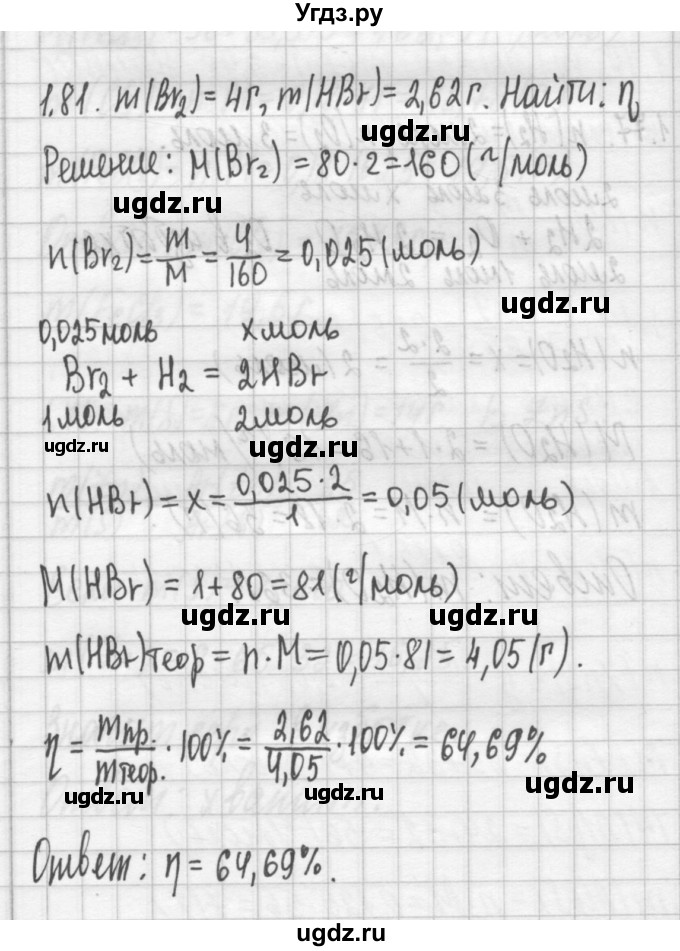 Угдз.ру
1.81. m(Br₂) = 4г, m(HBr) = 2,62г. Найти: η
Решение: M(Br₂) = 80·2 = 160 (г/моль)
ugdz.ru ugdz.ru
n(Br₂) = m/M = 4/160 = 0,025 (моль)
ugdz.ru
0,025 моль x моль
Br₂ + H₂ = 2HBr
1 моль 2 моль
ugdz.ru ugdz.ru
n(HBr) = x = 0,025·2/1 = 0,05 (моль)
M(HBr) = 1+80 = 81 (г/моль)
ugdz.ru ugdz.ru
m(HBr)теор = n·M = 0,05·81 = 4,05 (г).
η = mпр./mтеор. · 100% = 2,62/4,05 · 100% = 64,69%
ugdz.ru ugdz.ru ugdz.ru
Ответ: η = 64,69%.
ugdz.ru ugdz.ru